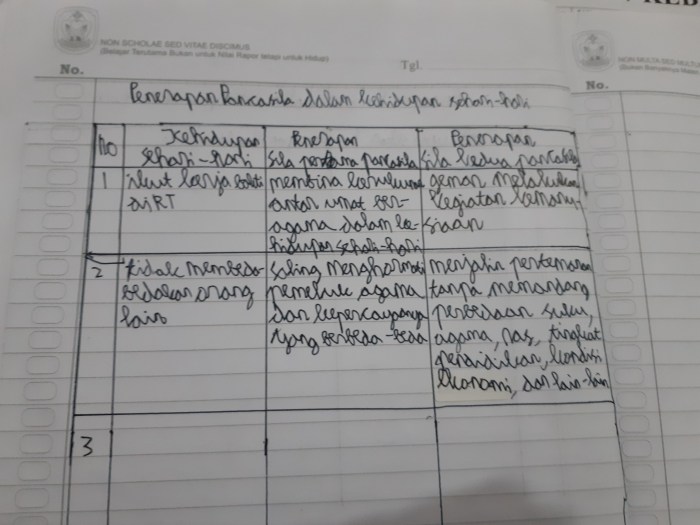 NON SCHOLAE SED VITAE DISCIMUS
(Belajar Terutama Bukan untuk Nilai Rapor tetapi untuk Hidup)
No.
Tgl.
NON MULTA SED MULTUM
No.
Penerapan Pancasila dalam kehidupan sehari-hari
No
Kehidupan
sehari-hari
Penerapan
sila pertama pancasila
Penerapan
sila kedua pancasila
1
ikut kerja bakti
di RT
membina kerukunan
antar umat ber-
agama dalam ke-
hidupan sehari-hari
geman melakukan
kegiatan kemanu-
siaan
2
tidak membeda-
bedakan orang
lain
saling menghormati
pemeluk agama
dan kepercayaannya
yang berbeda-beda
menjalin pertemanan
tanpa memandang
perbedaan suku,
agama, ras, tingkat
pendidikan, kondisi
ekonomi, dan lain-lain
3